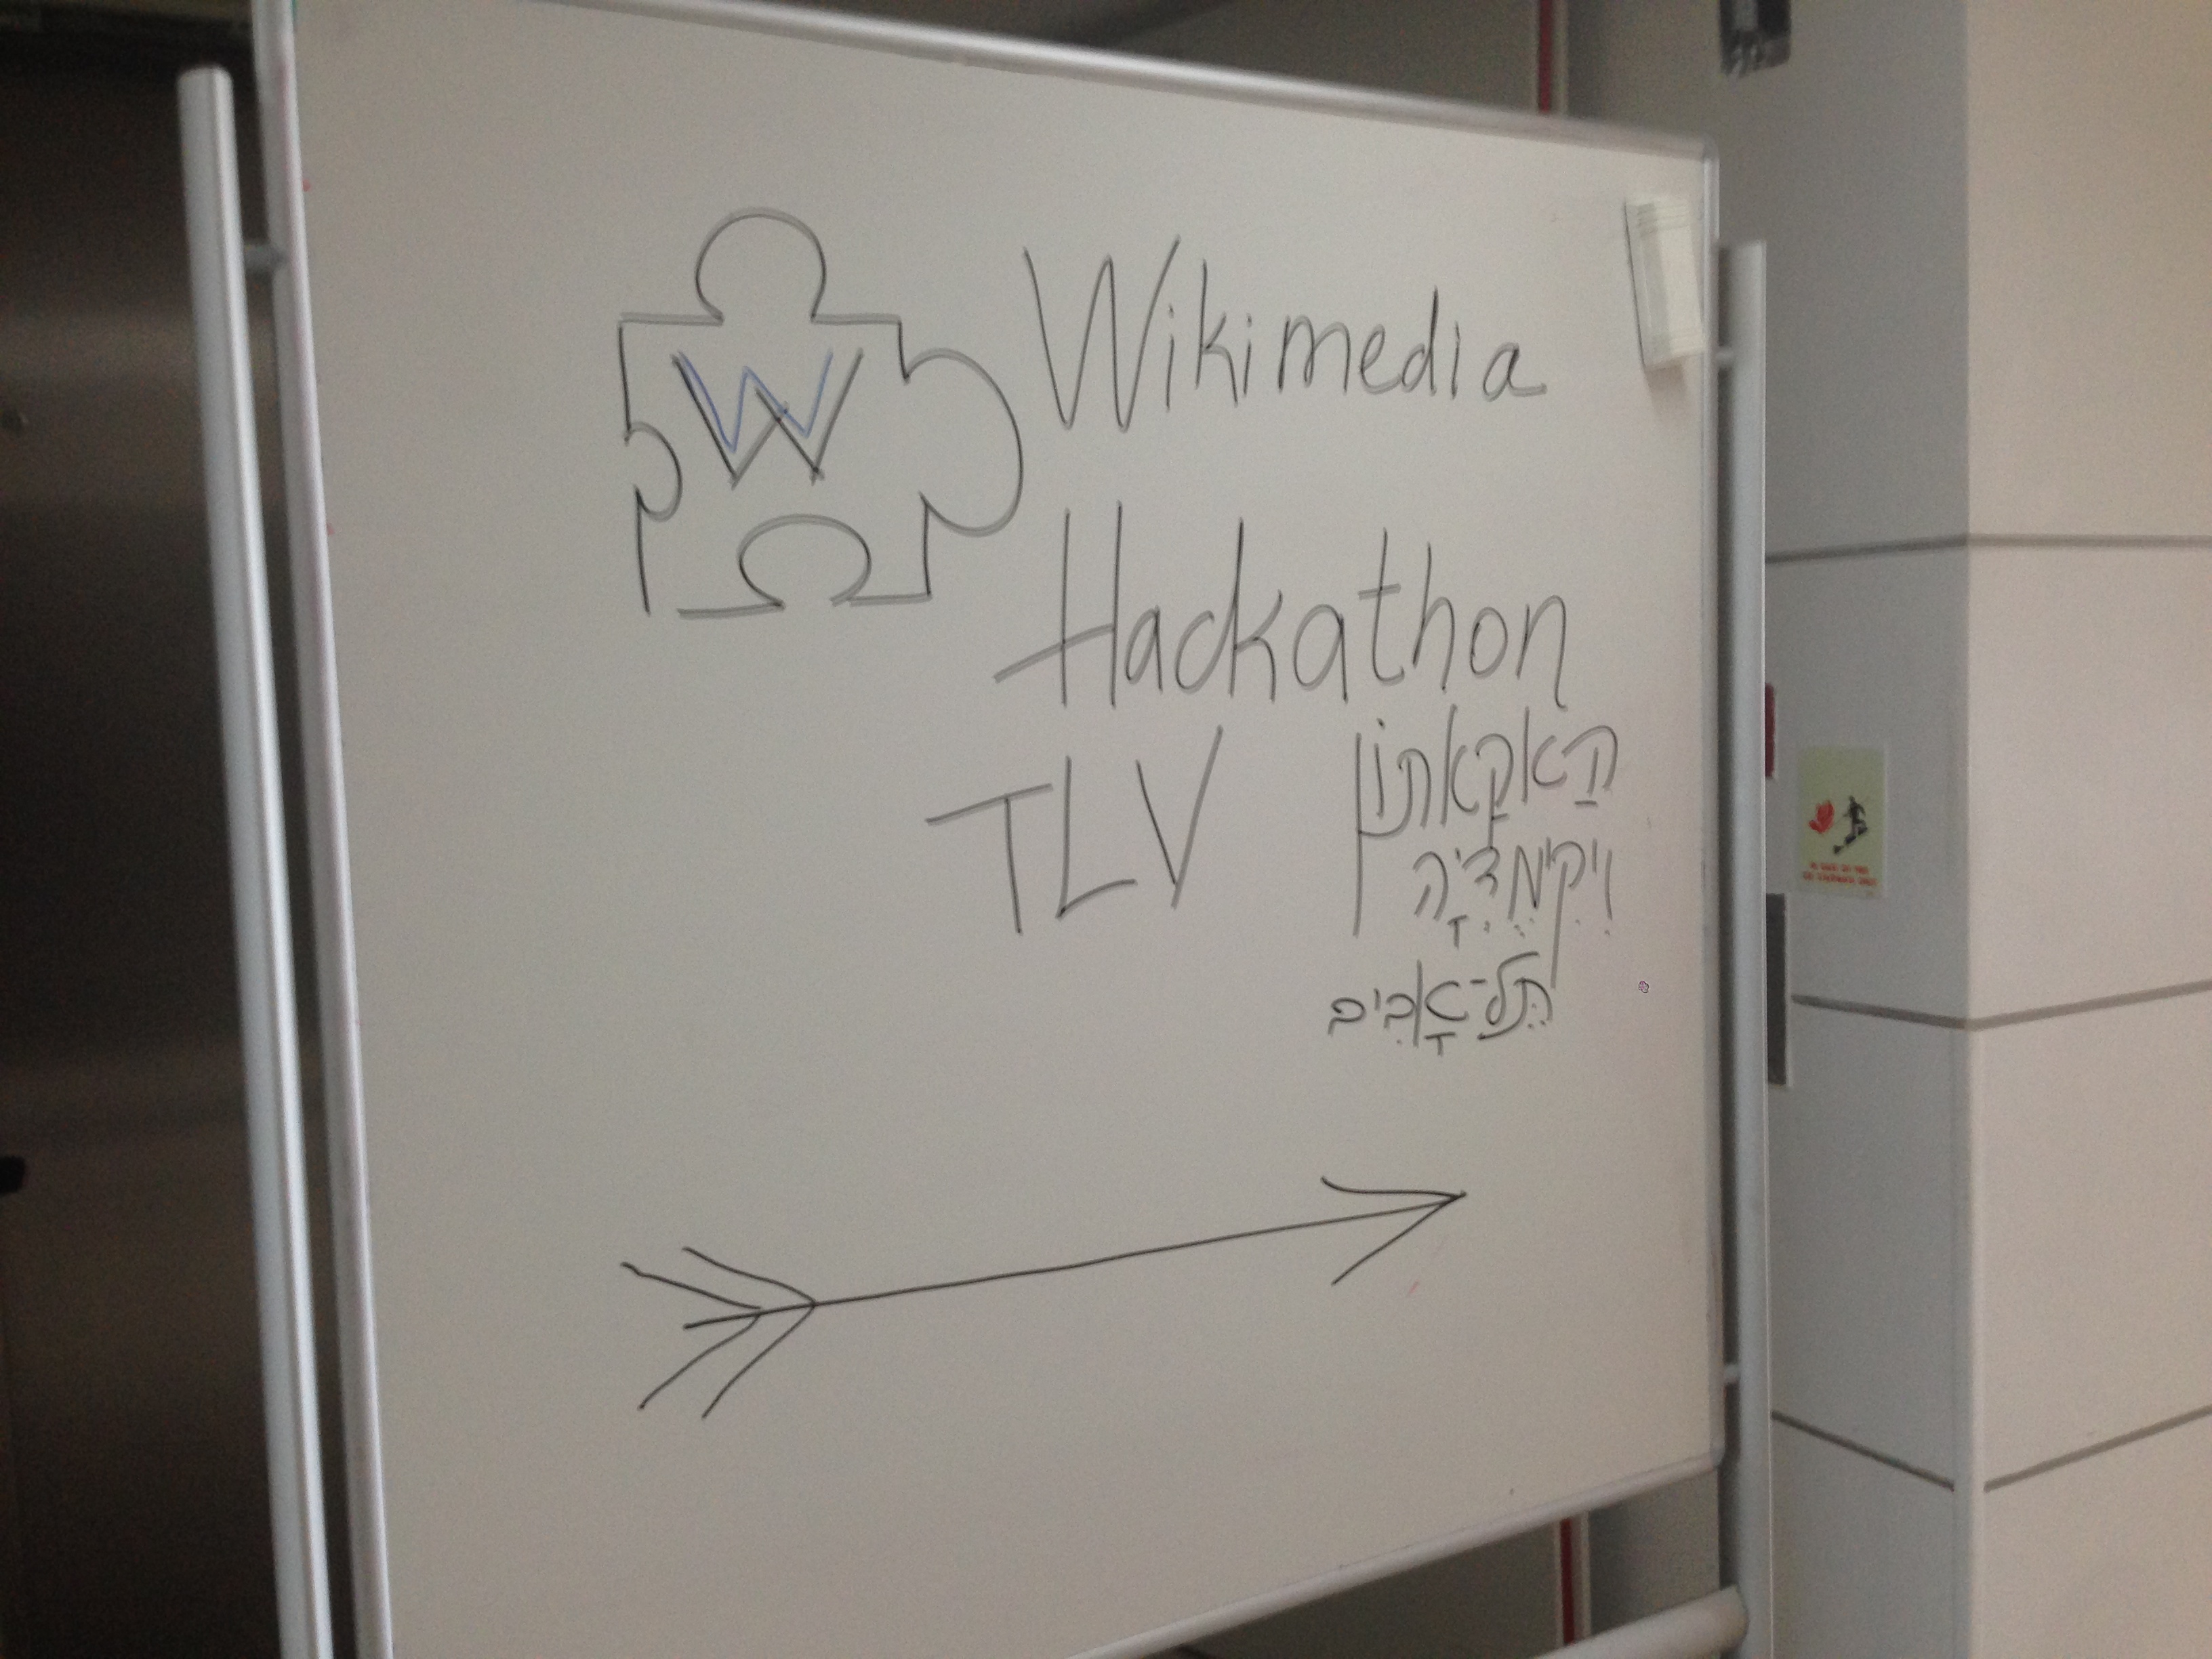 W
Wikimedia
Hackathon
TLV
הַאקָאתוֹן
וִיקִימֶדְיָה
תֵּל־אָבִיב